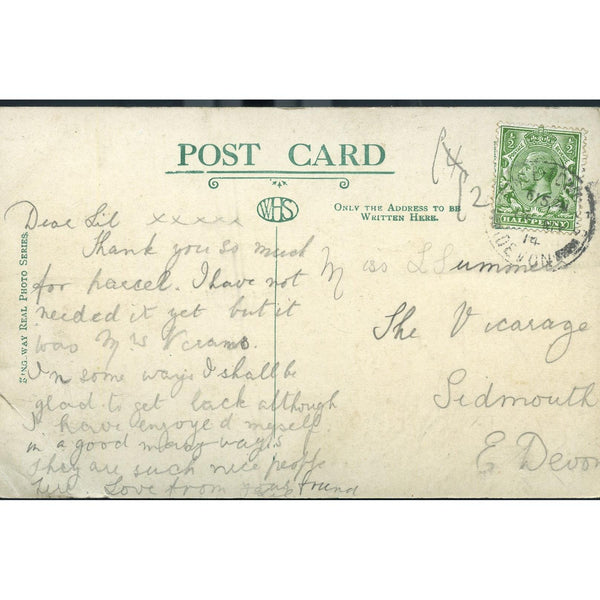 POST CARD
WHS
ONLY THE ADDRESS TO BE
WRITTEN HERE.
KINGSWAY REAL PHOTO SERIES.
½ ½
HALFPENNY
14
DEVON
2
Dear Lil xxxxx
Thank you so much
for parcel. I have not
needed it yet but it
was Mrs
In some ways I shall be
glad to get back although
I have enjoyed myself
in a good many ways
they are such nice people
here Love from your friend
Miss L Summe
The Vicarage
Sidmouth
E Devon